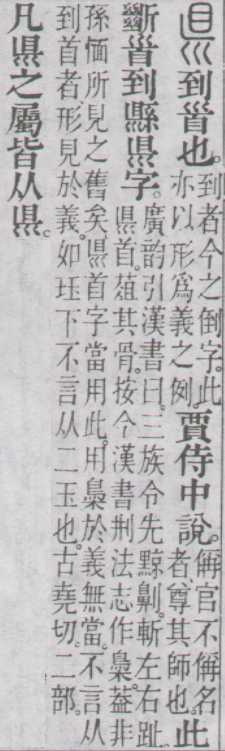 県到𩠐也。到者今之倒字。此亦以形爲義之例。賈侍中說。偁官不偁名者、尊其師也。此
斷𩠐到縣県字。廣韵引漢書曰。三族令先黥劓。斬左右趾県首。葅其骨。按今漢書刑法志作梟。葢非
孫愐所見之舊矣。県首字當用此。用梟於義無當。不言从到首者、形見於義。如珏下不言从二玉也。古堯切。二部。
凡県之屬皆从県。